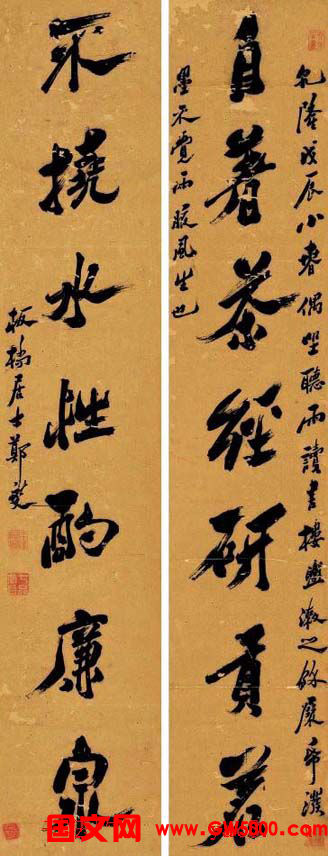 乾隆戊辰小春偶坐聽雨讀書樓盥漱之餘
自著茶經研貢茗
墨不覺兩腋風生也
不撓水性酌廉泉
板橋居士鄭燮
国文网 www.GW5000.com